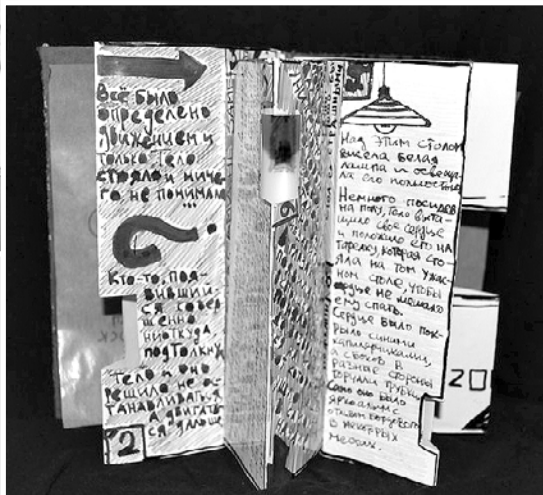 Всё было
определено
движением и
только Тело
стояло и ниче-
го не понимало
...
?
Кто-то, поя-
вивший-
ся совер-
шенно
ниоткуда
подтолкнул
Тело и оно
решило не ос-
танавливаться
а двигать-
ся дальше
2
Над этим столом
висела белая
лампа и освеща-
ла его полностью
Немного посидев
на полу, Тело выта-
щило своё сердце
и положило его на
тарелку, которая сто-
яла на том ужас-
ном столе, чтобы
сердце не мешало
ему спать.
Сердце было пок-
рыто синими
капиллярчиками,
а с боков в
разные стороны
торчали трубки.
Само оно было
ярко-алым с
отливом бордового
в некоторых
местах.
20